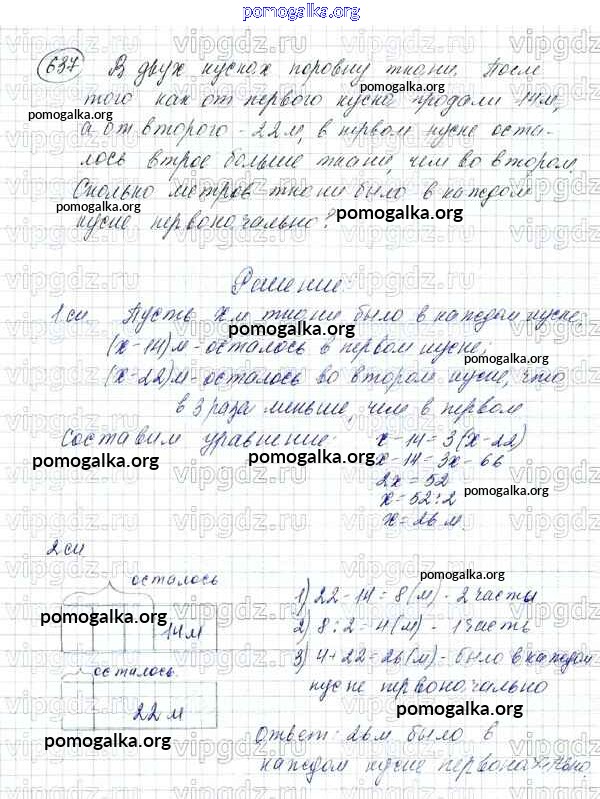 pomogalka.org
637 В двух кусках поровну ткани. После
того как от первого куска продали 14м,
а от второго - 22 м, в первом куске оста-
лось втрое больше ткани, чем во втором.
Сколько метров ткани было в каждом
куске первоначально?
pomogalka.org
Решение:
1 сп. Пусть x м ткани было в каждом куске,
pomogalka.org
(x-14)м - осталось в первом куске;
(x-22)м - осталось во втором куске, что
в 3 раза меньше, чем в первом
Составим уравнение: x-14=3(x-22)
pomogalka.org x-14=3x-66
2x=52
pomogalka.org
x=52:2
x=26 м.
2 сп
pomogalka.org
осталось
1) 22-14=8(м) - 2 части
pomogalka.org
14 м
2) 8:2=4(м) - 1 часть
осталось
3) 4+22=26(м) - было в каждом
куске первоначально
22 м
pomogalka.org
Ответ: 26м было в
pomogalka.org
каждом куске первоначально.
pomogalka.org